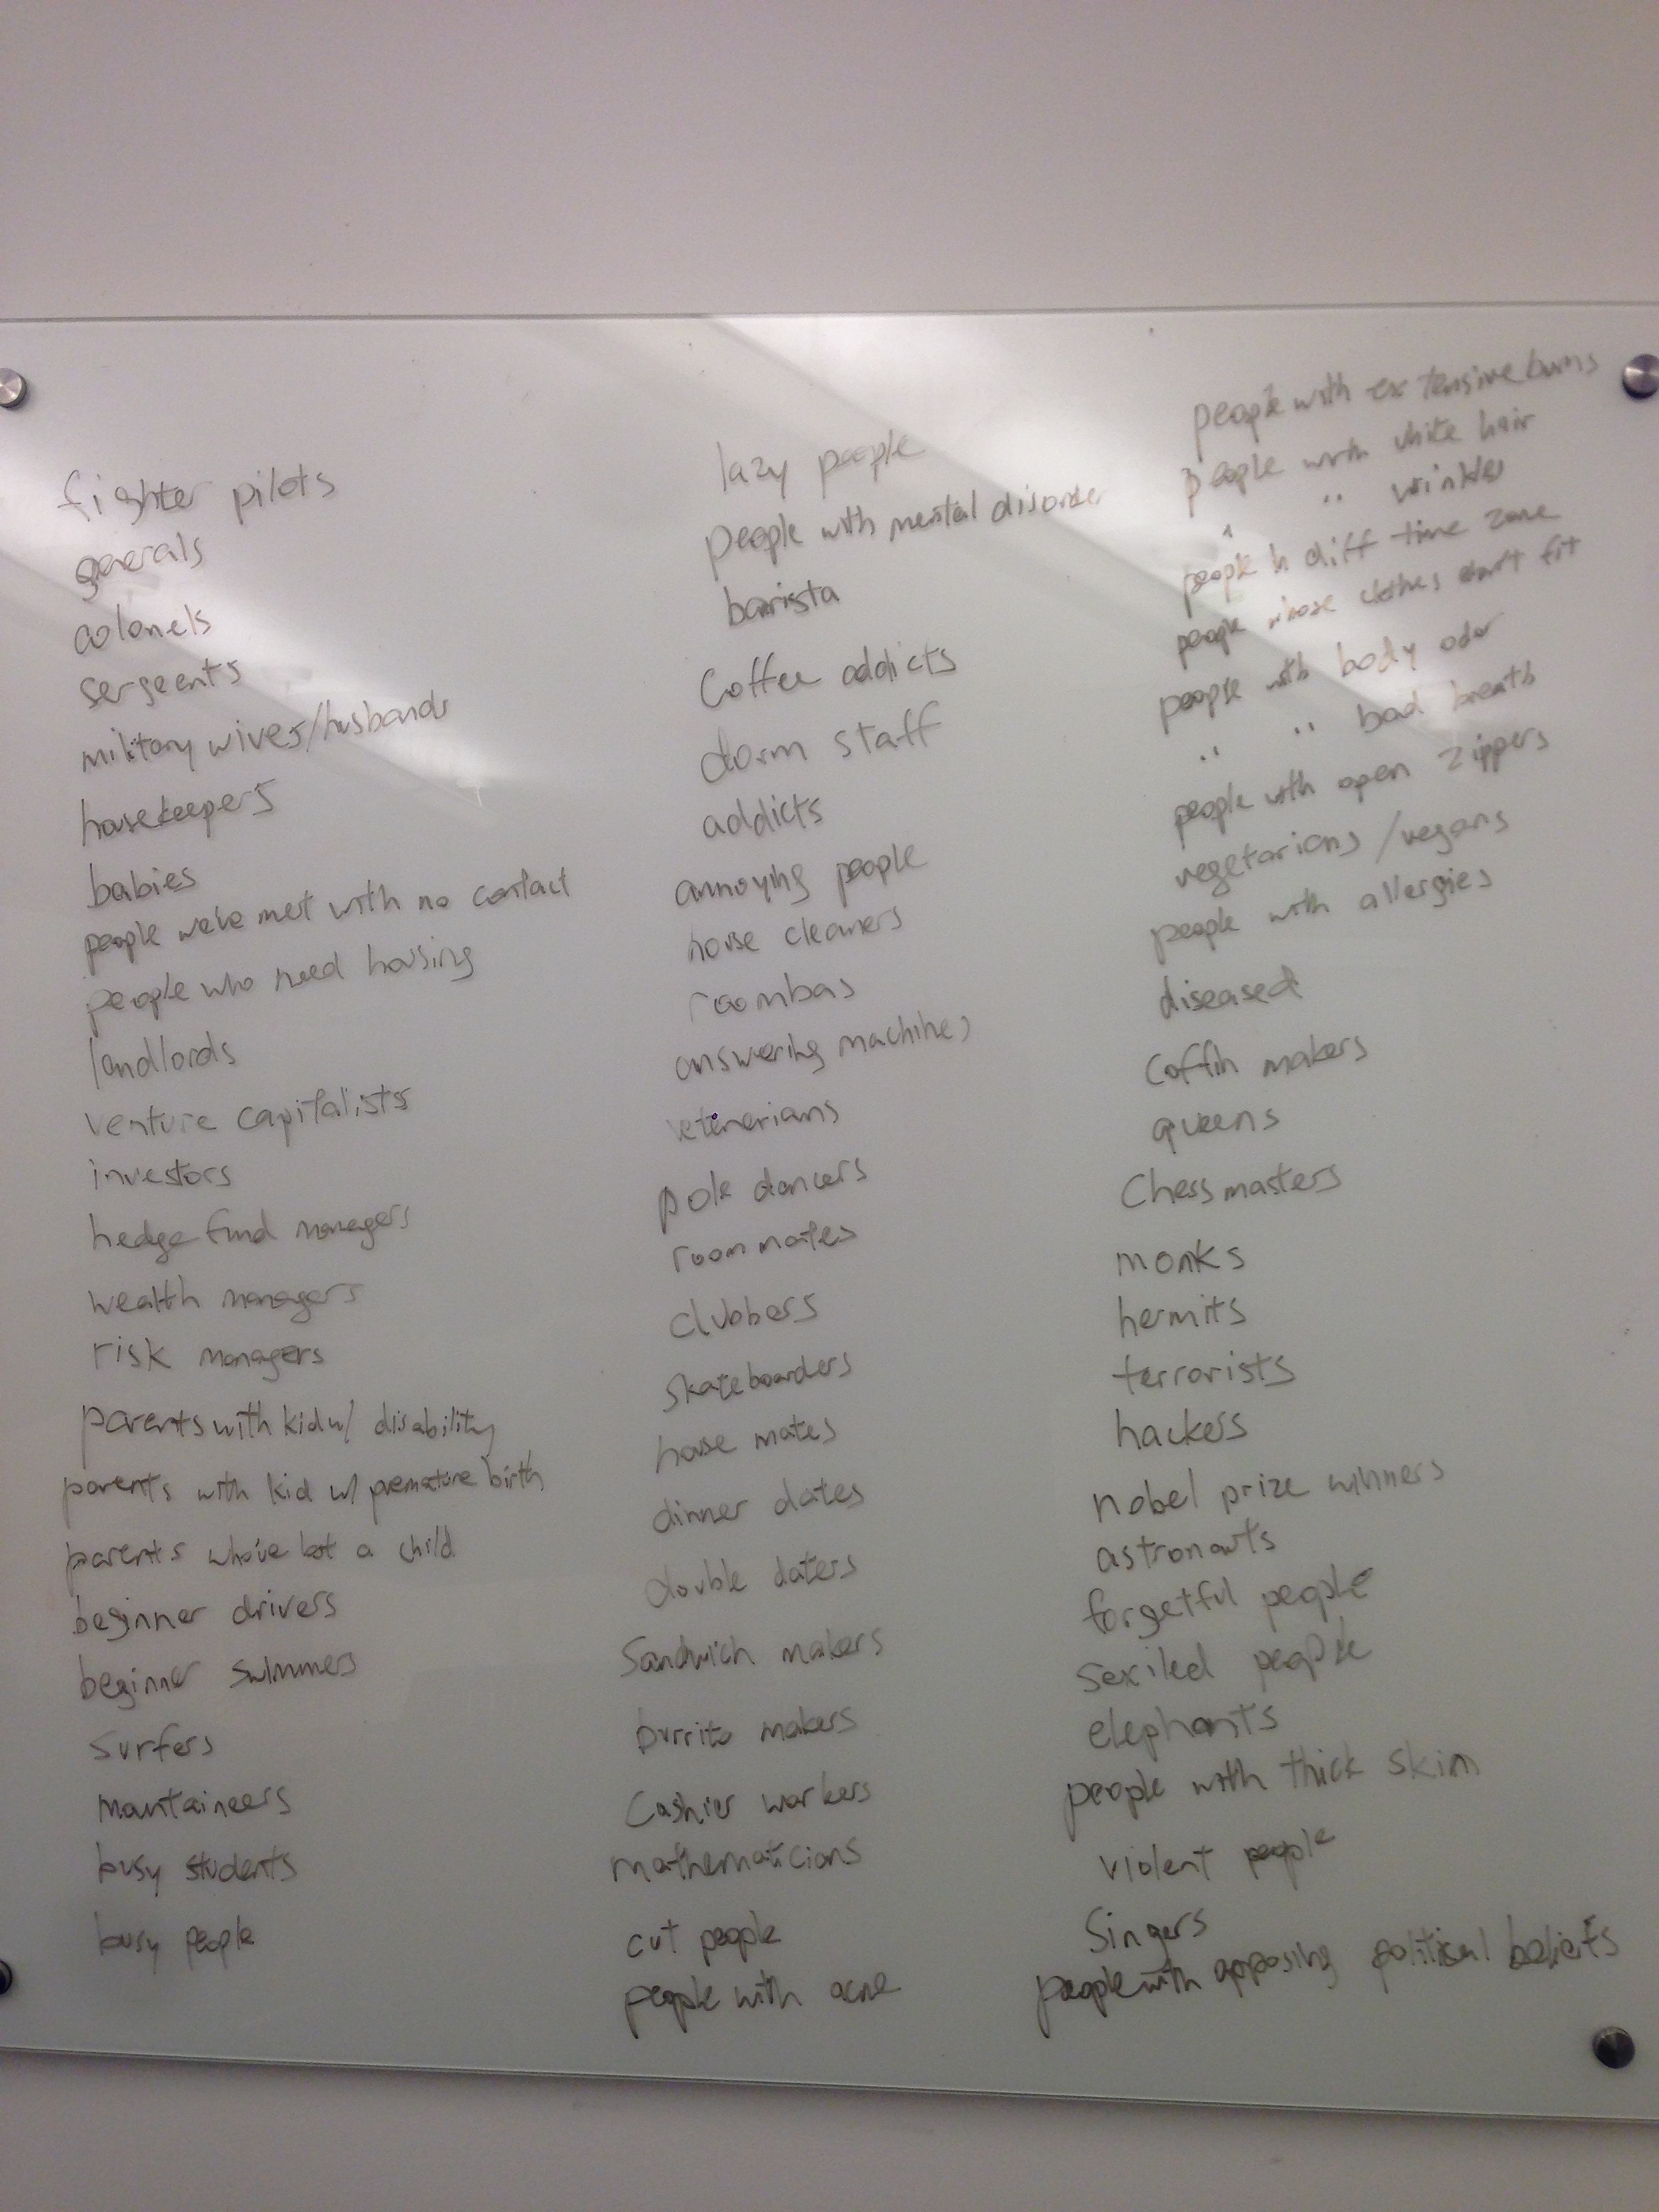 fighter pilots
generals
colonels
sergeents
military wives/husbands
housekeepers
babies
people we've met with no contact
people who need housing
landlords
venture capitalists
investors
hedge fund managers
wealth managers
risk managers
parents with kid w/ disability
parents with kid w/ premature birth
parents who've lost a child
beginner drivers
beginner swimmers
surfers
mountaineers
busy students
busy people
lazy people
people with mental disorder
barista
coffee addicts
dorm staff
addicts
annoying people
house cleaners
roombas
answering machines
vetinerians
pole dancers
roommates
clubbers
skateboarders
house mates
dinner dates
double daters
sandwich makers
burrito makers
cashier workers
mathematicians
cut people
people with acne
people with extensive burns
people with white hair
" " wrinkles
people in diff time zone
people whose clothes don't fit
people with body odor
" " bad breath
people with open zippers
vegetarians/vegans
people with allergies
diseased
coffin makers
queens
chess masters
monks
hermits
terrorists
hackers
nobel prize winners
astronauts
forgetful people
sexiled people
elephants
people with thick skin
violent people
singers
people with opposing political beliefs